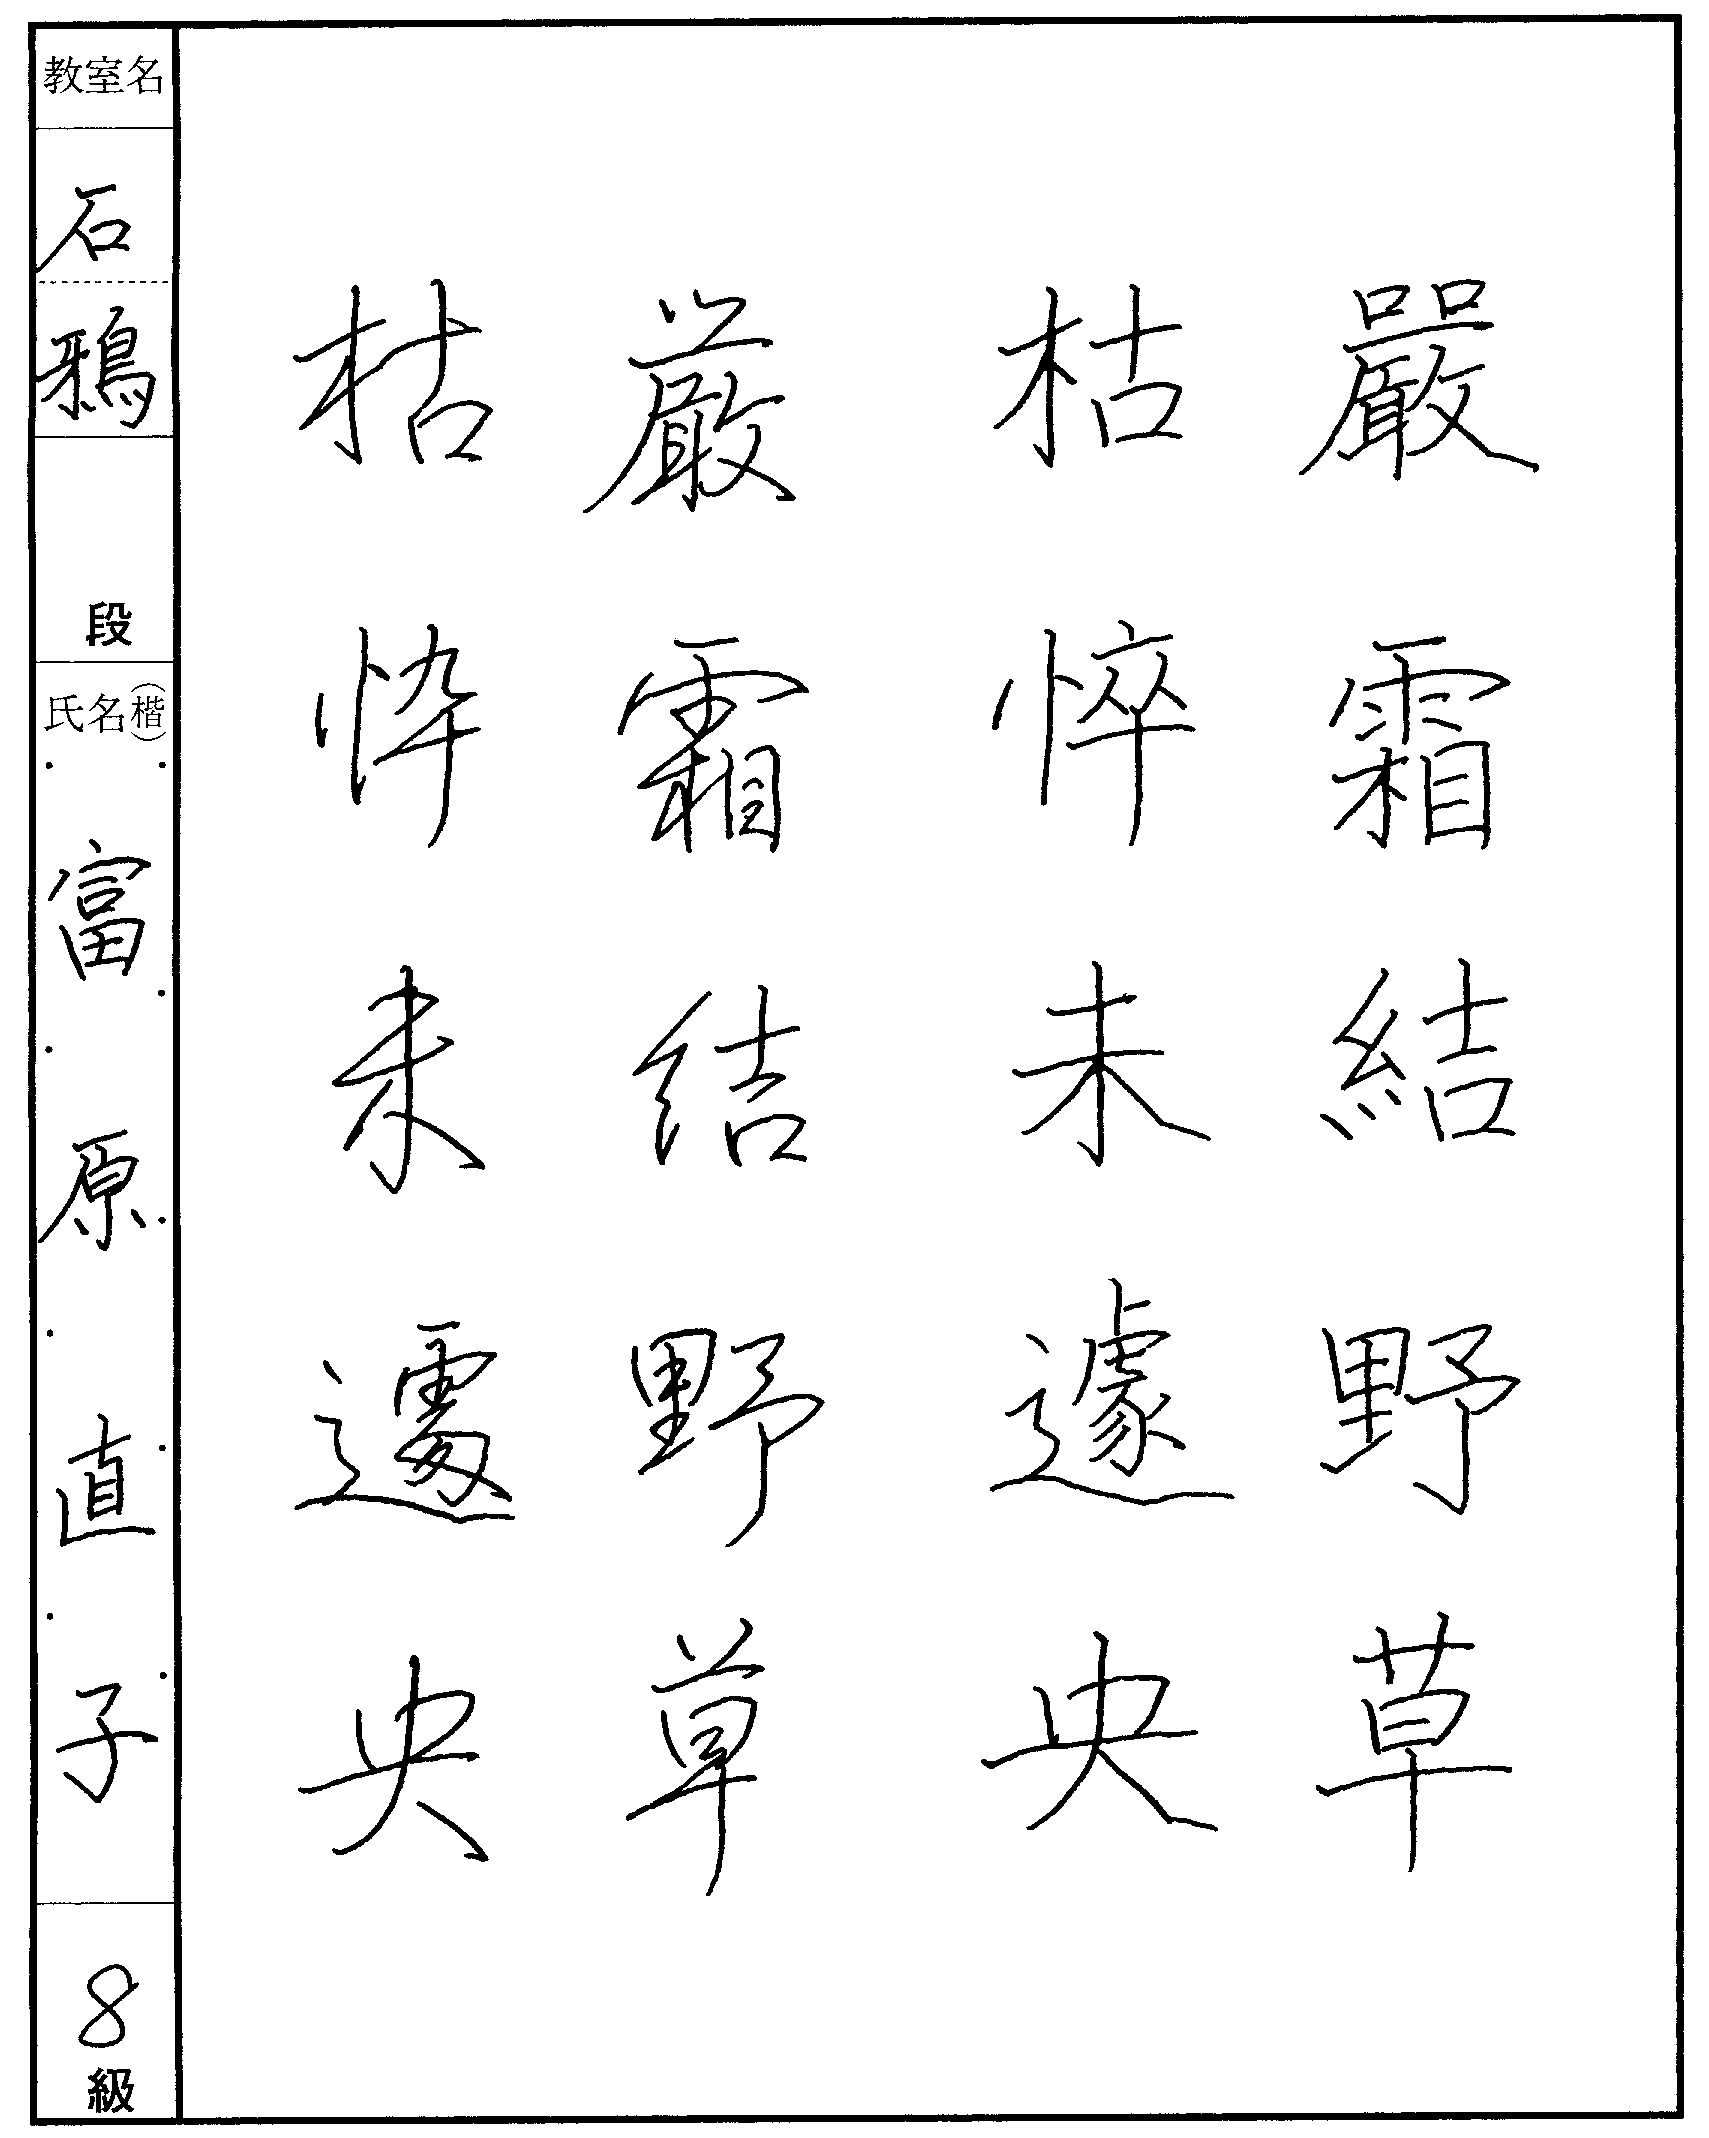 嚴霜結野草
枯悴未遽央
厳霜結野草
枯悴未遽央
教室名
石鴉
段
氏名(楷)
富原直子
8級